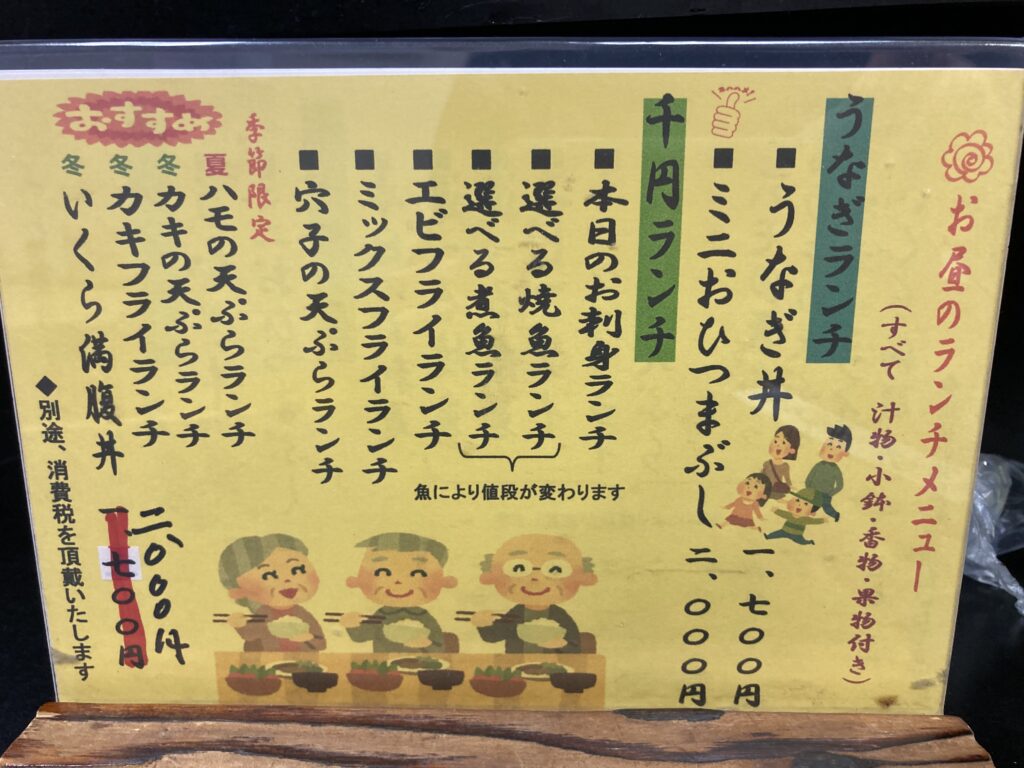 お昼のランチメニュー
(すべて 汁物・小鉢・香物・果物付き)
うなぎランチ
■うなぎ丼 一、七〇〇円
■ミニおひつまぶし 二、〇〇〇円
千円ランチ
■本日のお刺身ランチ
■選べる焼魚ランチ
■選べる煮魚ランチ
魚により値段が変わります
■エビフライランチ
■ミックスフライランチ
■穴子の天ぷらランチ
季節限定
おすすめ
夏 ハモの天ぷらランチ
冬 カキの天ぷらランチ
冬 カキフライランチ
冬 いくら満腹丼 一七〇〇円
二、000円
◆別途、消費税を頂戴いたします